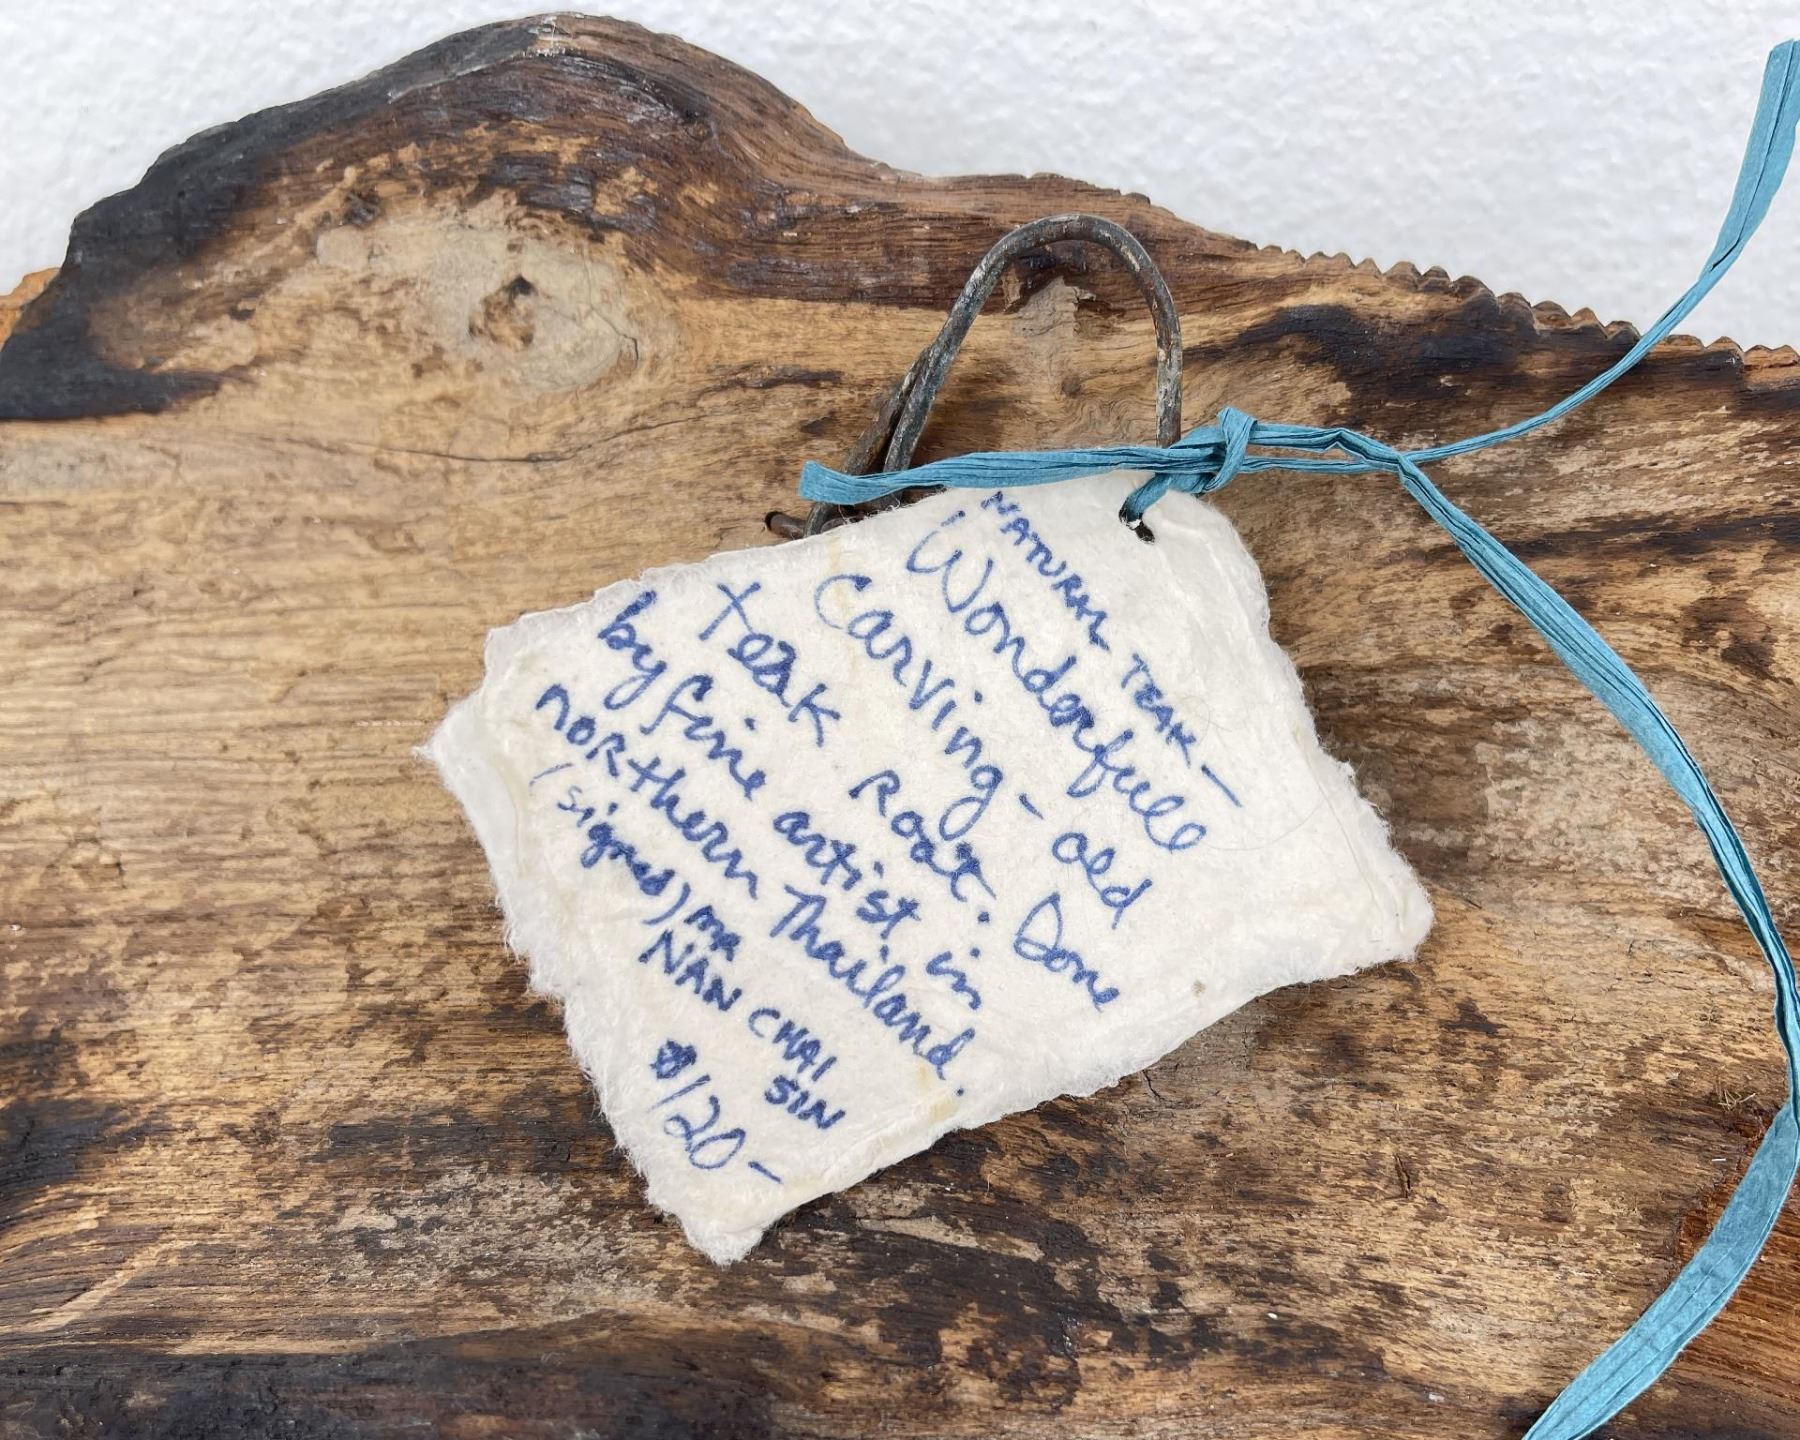 NATURAL TEAK —
Wonderfull
Carving - old
teak Root. Done
by fine artist in
NORthern Thailand.
(signed) MR
NAN CHAI
SIN
$120 —